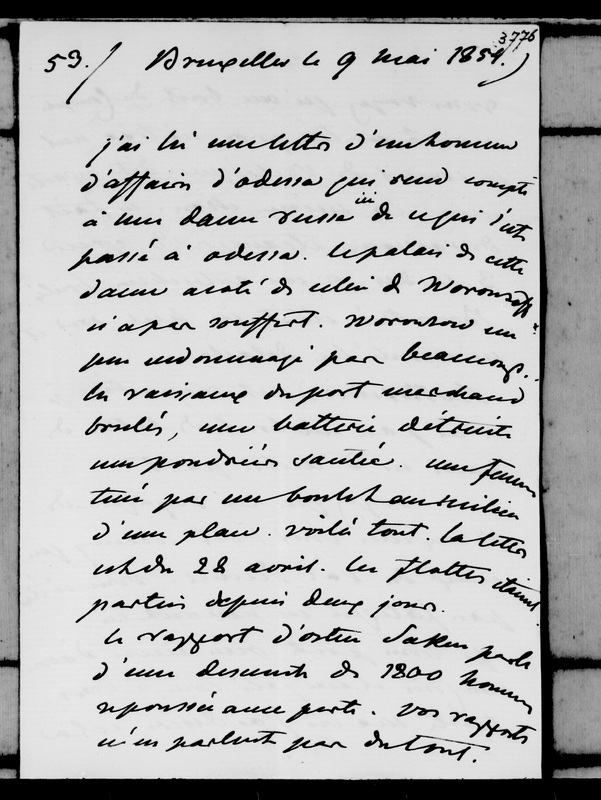 3776
53./ Bruxelles le 9 mai 1854.
j'ai lu une lettre d'un homme
d'affaires d'odessa qui rend compte
à une dame russe ici de ce qui s'est
passé à odessa. le palais de cette
dame a coté de celui de Woronzoff
n'a pas souffert. Woronzow un
peu endommagé pas beaucoup.
les vaisseaux du port marchand
brulés, une batterie détruite
une poudrière sautée. une femme
tuée par un boulet au milieu
d'une place. voilà tout. la lettre
est du 28 avril. les flottes étaient
parties depuis deux jours.
le rapport d'osten Saken parle
d'une descente de 1800 hommes
repoussée avec perte. vos rapports
n'en parlent pas du tout.